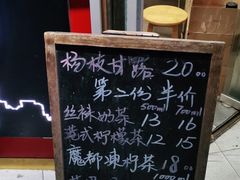 杨枝甘露 20.00
第二份半价
500ml 700ml
丝袜奶茶 13 16
港式柠檬茶 12 15
魔都冻柠茶 18.00
1000ml